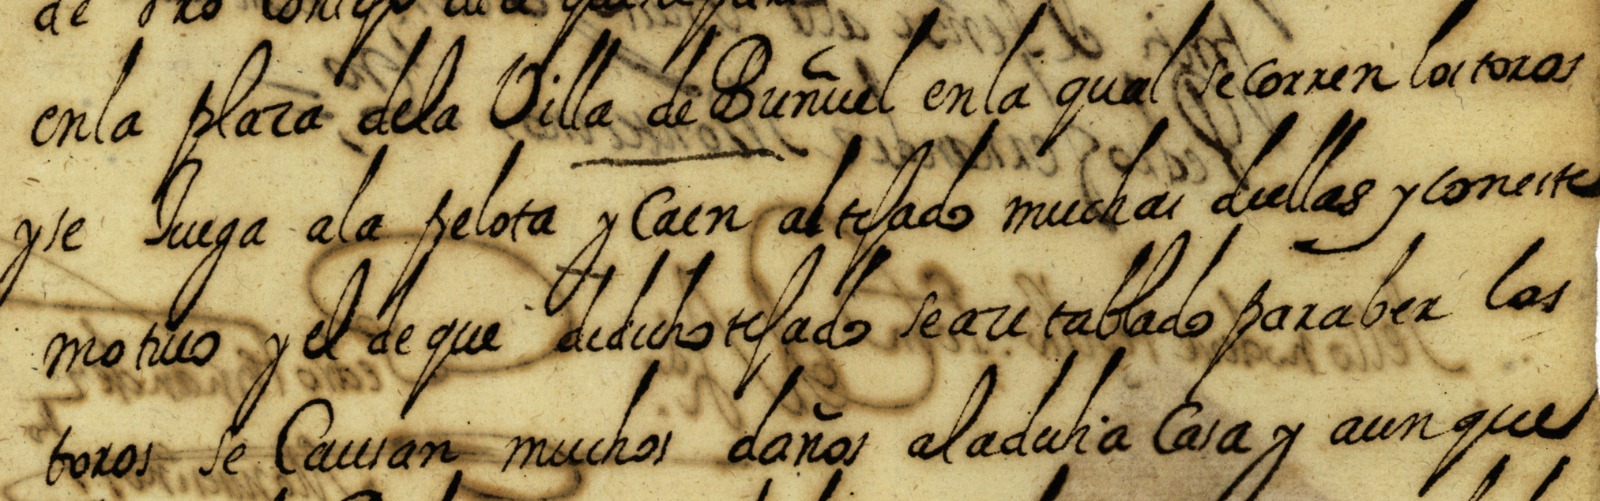 de
en la plaza de la Villa de Buñuel en la qual se corren los toros
y se Juega a la pelota y Caen al tejado muchas de ellas y con este
motiuo y el de que de dicho tejado se açe tablado para ber los
toros se Causan muchos daños a la dicha Casa y aunque